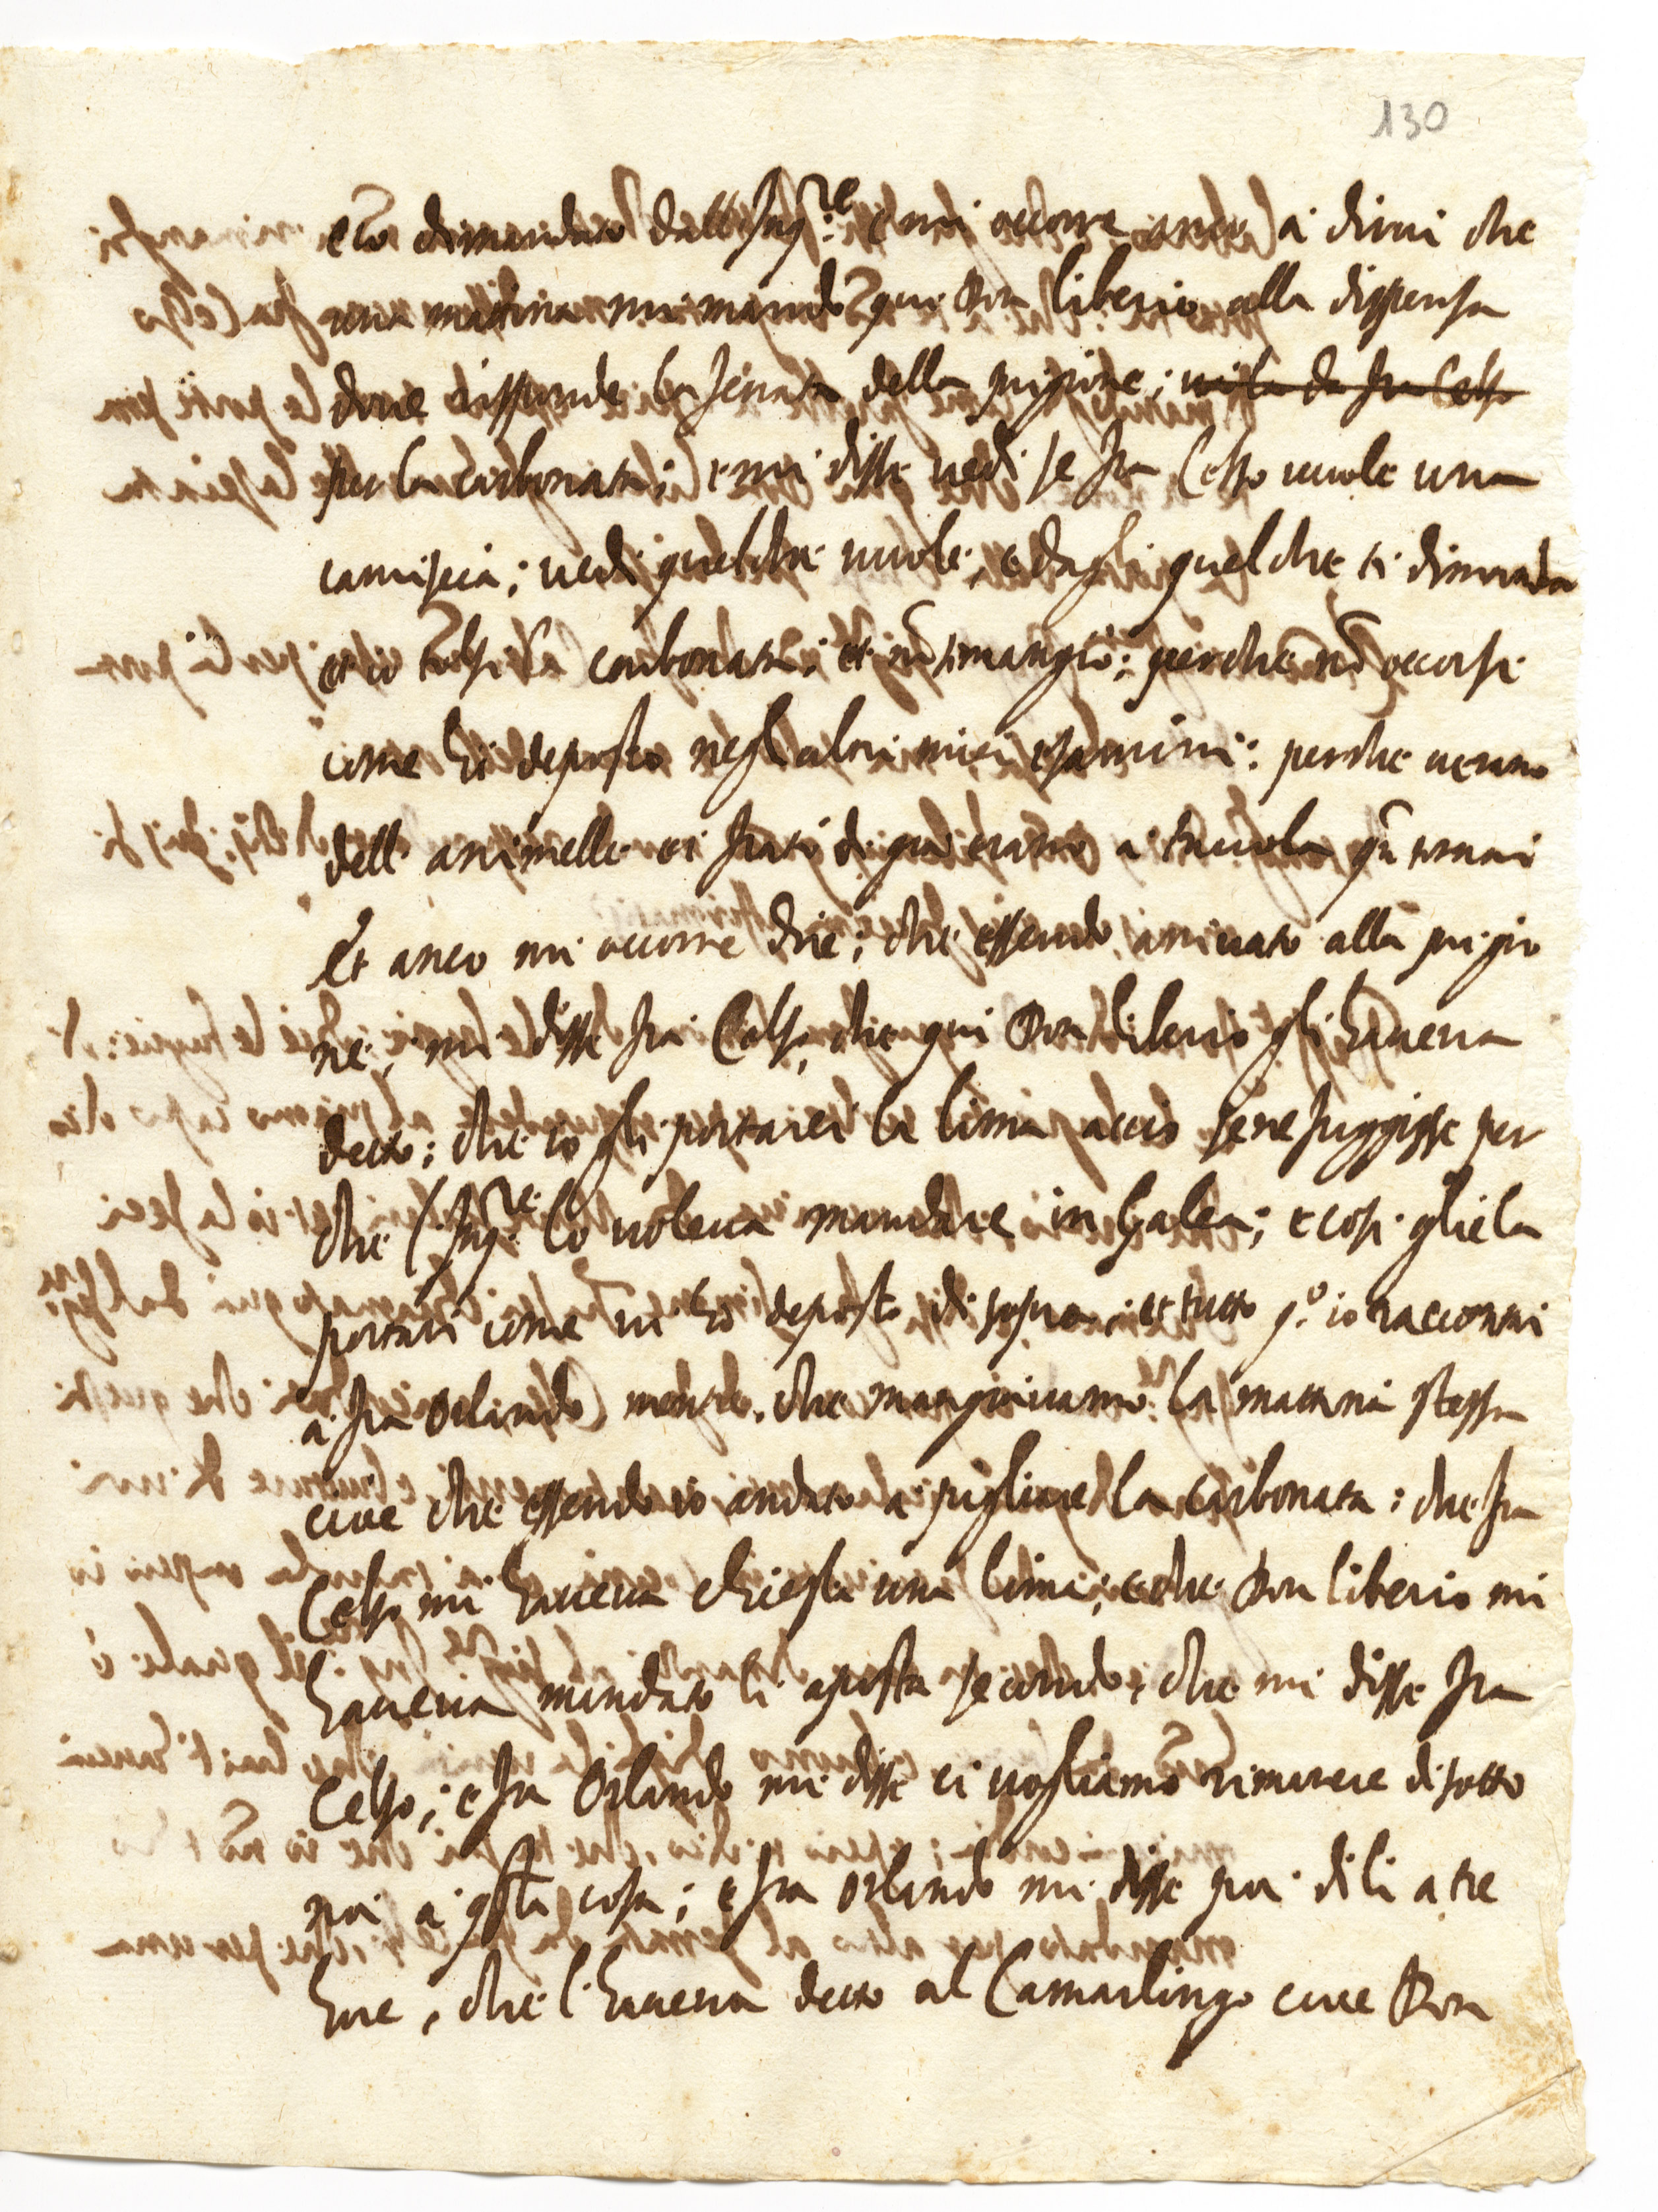 130
e co dimandato dall Ing:re e mi occorre anco a dirui che
una matina mi mando qui Don Liberio alla dispensa
doue rissponde la ferrata della prigione; uista da fra Celso
per la carbonata; e mi disse uedi se fra Celso uuole una
camiscia; uedi quelche uuole, e dagli quel che ti dimanda
et io tolsi la carbonata; et nō si mangiò; perche nō occorse
come hò deposto negl altri miei esamini: perche uerano
dell animelle et frati di gia erano a tauola qn̄ tornai
Et anco mi occorre dire; che essendo arriuato alla prigio
ne; mi disse fra Celso, che qui Don Liberio gli haueua
detto; che io gli portarei la lima accio se ne fuggisse per
che l Ing:re lo uoleua mandare in Galea; e cosi gliela
portai come ui hò deposto di sopra, et tutto q.o io raccontai
a fra Orlando mentre che mangiauamo la matina stessa
cioe che essendo io andato a pigliare la carbonata; che fra
Celso mi haueua chiesta una lima; e che Don Liberio mi
haueua mandato li aposta secondo, che mi disse fra
Celso; e fra Orlando mi disse ci uogliamo rimanere di sotto
noi a qsta cosa; e fra Orlando mi disse poi di li a tre
hore, che l haueua detto al Camarlingo cioe Don